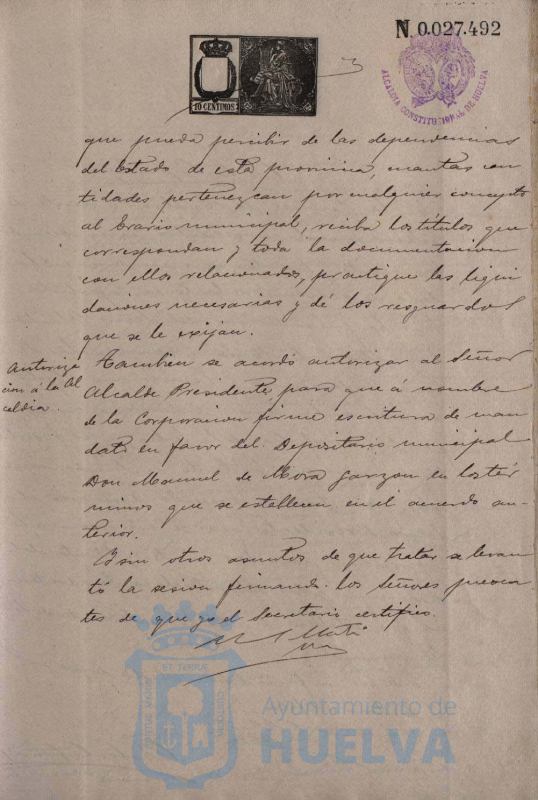 N 0.027.492
10 CENTIMOS
ALCALDIA CONSTITUCIONAL DE HUELVA
que pueda percibir de las dependencias
del Estado de esta provincia, cuantas can
tidades pertenezcan por cualquier concepto
al Erario municipal, reciba los títulos que
correspondan y toda la documentacion
con ellos relacionados, practique las liqui
daciones necesarias y dé los resguardos
que se le exijan.
Autoriza
cion á la Al
caldia.
Tambien se acordó autorizar al Señor
Alcalde Presidente para que á nombre
de la Corporacion firme escritura de man
dato en favor del Depositario municipal
Don Manuel de Mora Garzon en los tér
minos que se establecen en el acuerdo an-
terior.
Y sin otros asuntos de que tratar se levan
tó la sesion firmando los Señores presen
tes de que yo el Secretario certifico.
Ayuntamiento de
HUELVA